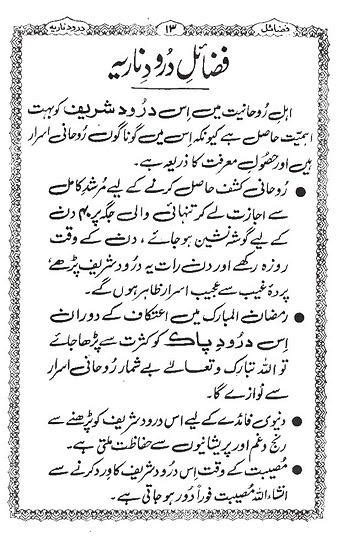 فضائل ۱۳ درود ناریہ
فضائلِ درودِ ناریہ
اہلِ رُوحانیت میں اِس دُرُود شریف کو بہت
اہمیّت حاصل ہے کیونکہ اِس میں گوناگوں رُوحانی اسرار
ہیں اور حصُولِ معرفت کا ذریعہ ہے۔
● رُوحانی کشف حاصل کرنے کے لیے مُرشدِ کامل
سے اجازت لے کر تنہائی والی جگہ پر ۴۰ دن
کے لیے گوشہ نشین ہو جائے ، دن کے وقت
روزہ رکھے اور دن رات یہ درُود شریف پڑھے،
پردۂ غیب سے عجیب اسرار ظاہر ہوں گے۔
● رمضان المبارک میں اعتکاف کے دوران
اِس دُرُودِ پاک کو کثرت سے پڑھا جائے
تو اللہ تبارک و تعالےٰ بے شمار رُوحانی اسرار
سے نوازے گا۔
● دنیوی فائدے کے لیے اس درود شریف کو پڑھنے سے
رنج و غم اور پریشانیوں سے حفاظت ملتی ہے۔
● مُصیبت کے وقت اِس دُرُود شریف کا ورد کرنے سے
انشاء اللہ مُصیبت فوراً دُور ہو جاتی ہے۔